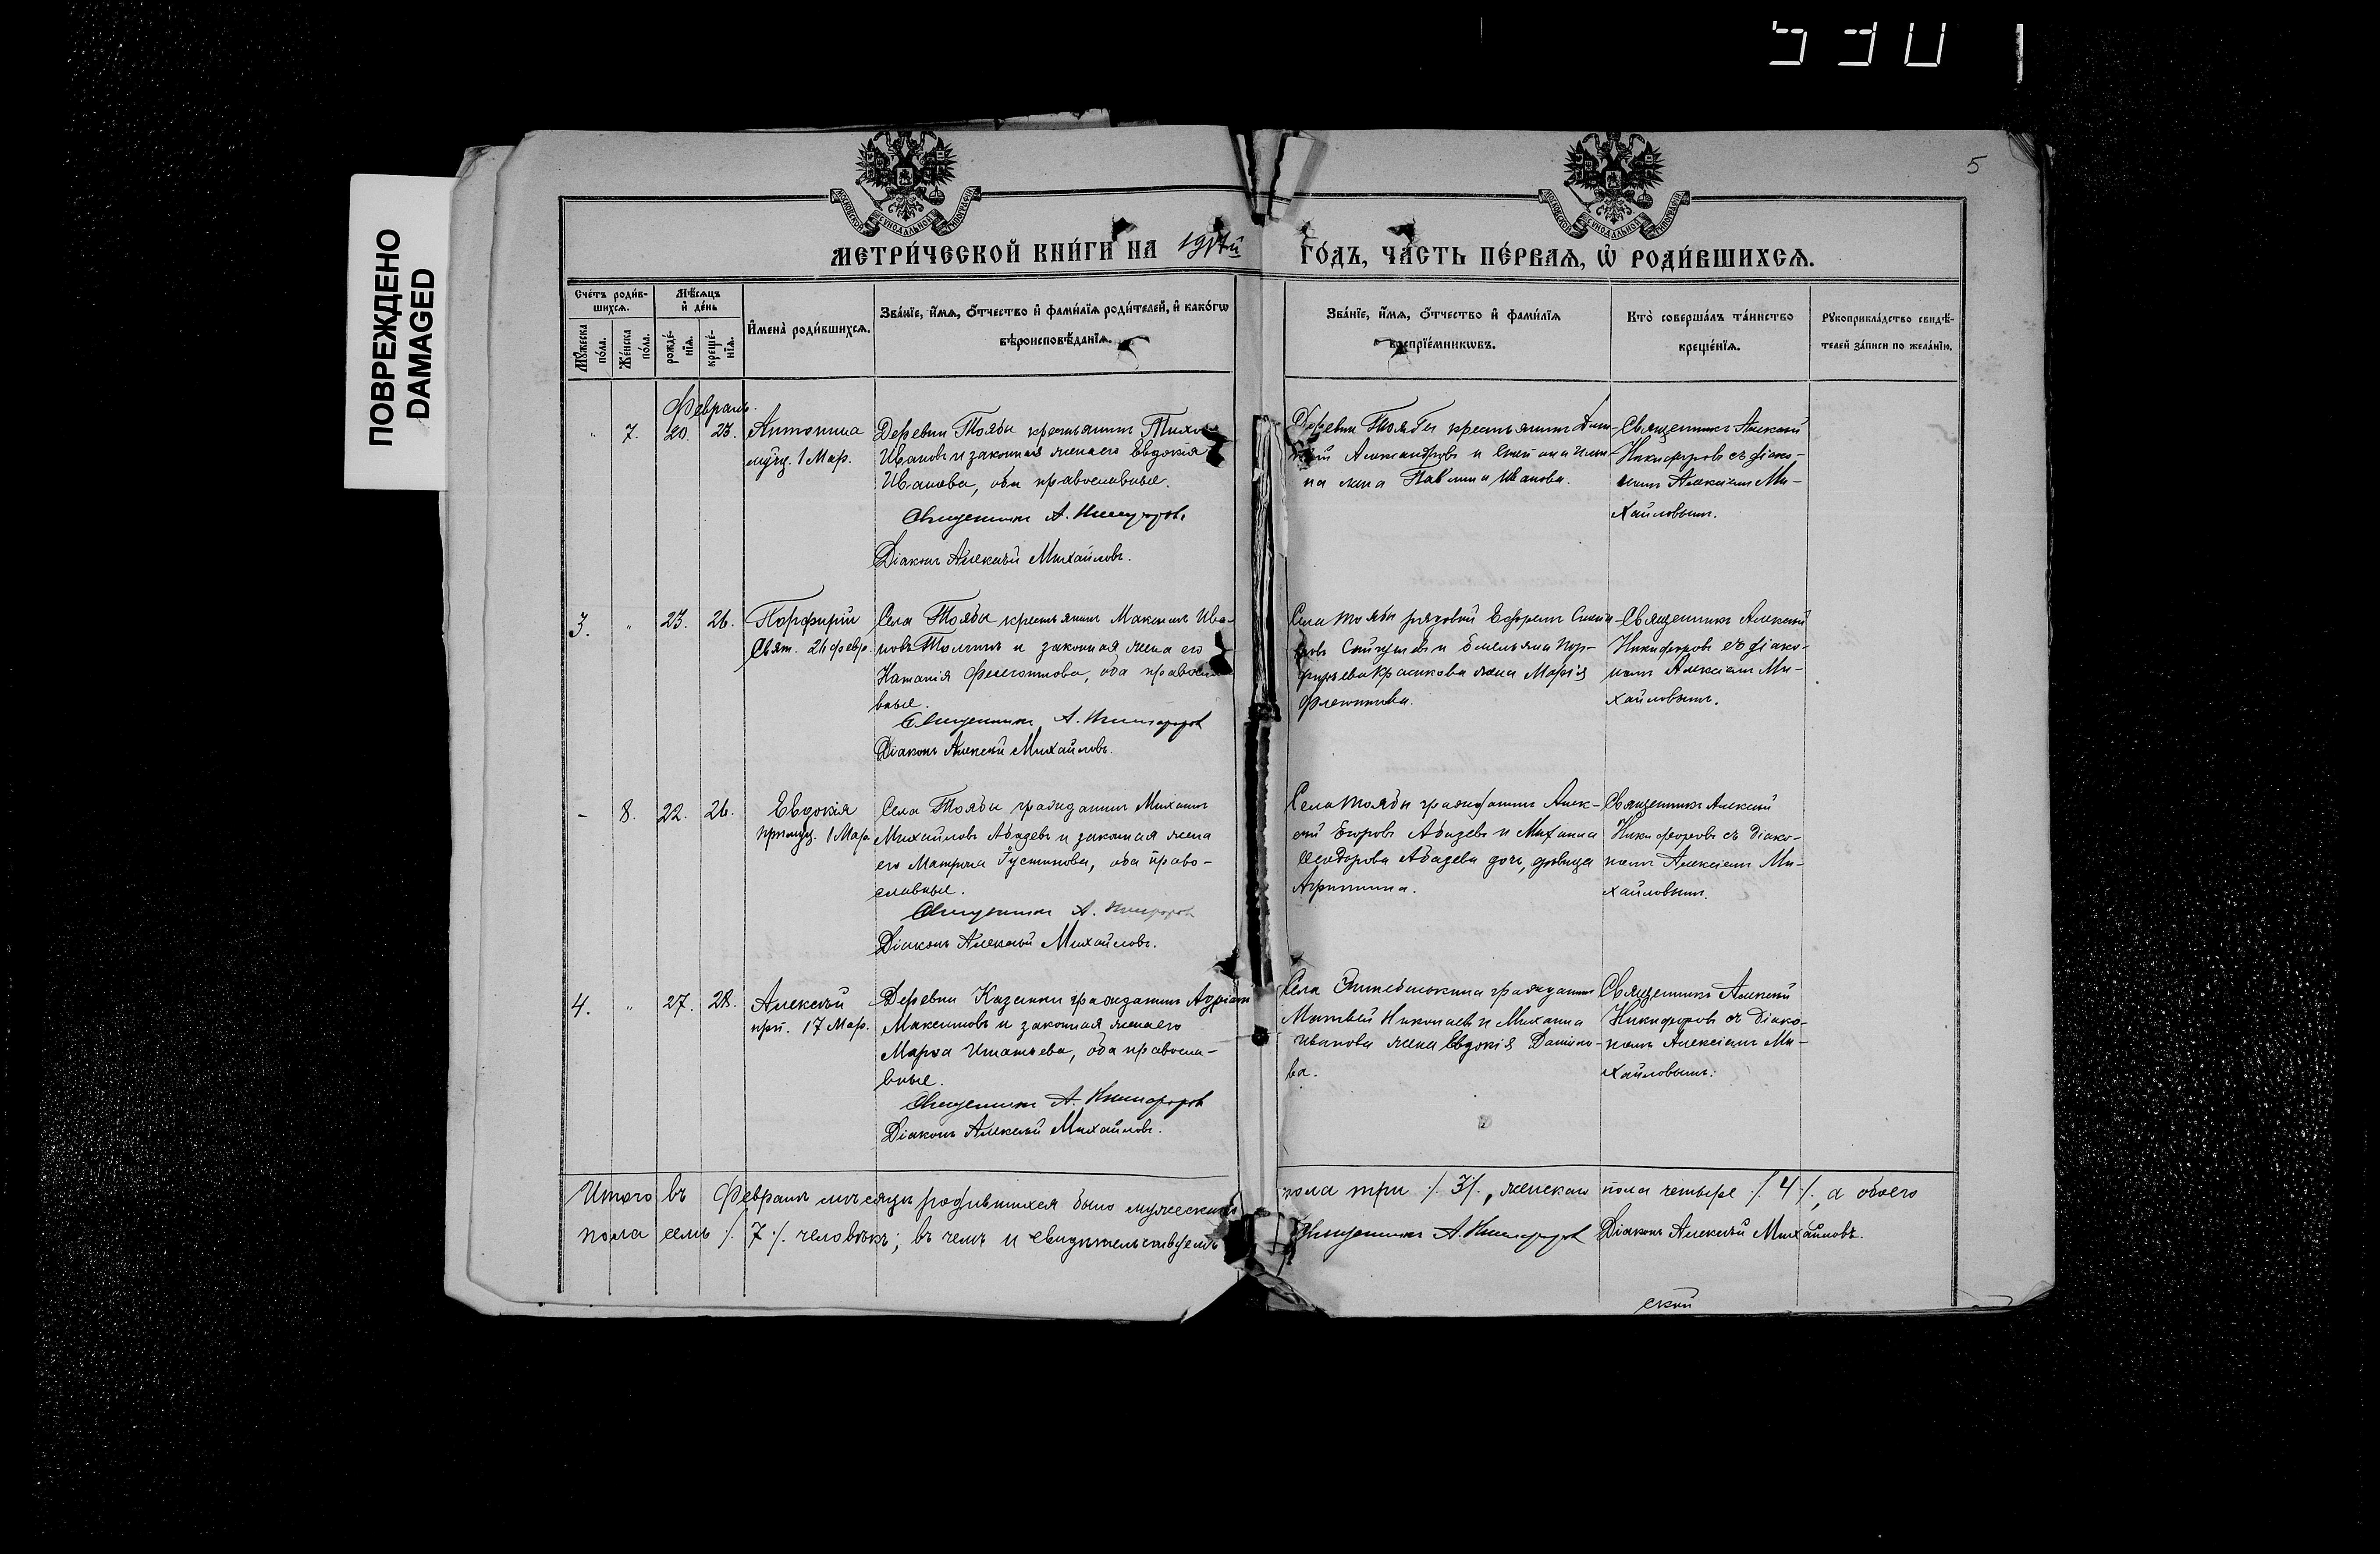 ПОВРЕЖДЕНО
DAMAGED
5
МЕТРИ́ЧЕСКОЙ КНИ́ГИ НА ГО́ДЪ, ЧА́СТЬ ПЕ́РВАѦ, Ѡ҆ РОДИ́ВШИХСѦ.
Сче́тъ роди́в-
шихсѧ.
Мѣ́сѧцъ
и҆ де́нь
Мꙋ́жеска
по́ла.
Же́нска
по́ла.
рожде́-
нїѧ.
креще́-
нїѧ.
И҆мена̀ роди́вшихсѧ.
Зва́нїе, и҆́мѧ, ѻ҆́тчество и҆ фами́лїѧ роди́телей, и҆ како́гѡ
вѣроисповѣ́данїѧ.
Зва́нїе, и҆́мѧ, ѻ҆́тчество и҆ фами́лїѧ
воспрїе́мникѡвъ.
Кто̀ соверша́лъ та́инство
креще́нїѧ.
Рꙋкоприкла́дство свидѣ́-
телей за́писи по жела́нїю.
Февраль.
" 7. 20. 23. Антонина
мучц. 1 Мар.
Деревни Тоябы крестьянинъ
Ивановъ и законная жена его Евдокія
Иванова, оба православные.
Священникъ А. Никифоровъ
Діаконъ Алексѣй Михайловъ.
Деревни Тоябы крестьянинъ
Александровъ и
на жена Иванова.
Священникъ Алексѣй
Никифоровъ съ діако-
номъ Алексіемъ Ми-
хайловымъ.
3. " 23. 26. Порфирій
Свят. 26 февр.
Села Тоябы крестьянинъ Максимъ Ива-
новъ и законная жена его
Наталія оба правосла-
вные.
Священникъ А. Никифоровъ
Діаконъ Алексѣй Михайловъ.
Села Тоябы рядовой Ефремъ
и Емельяна Пор-
фирьева Красикова жена Марія
Священникъ Алексѣй
Никифоровъ съ діако-
номъ Алексіемъ Ми-
хайловымъ.
- 8. 22. 26. Евдокія
1 Мар.
Села Тоябы гражданинъ Михаилъ
Михайловъ Абазевъ и законная жена
его Матрона Іустинова, оба право-
славные.
Священникъ А. Никифоровъ
Діаконъ Алексѣй Михайловъ.
Села Тоябы гражданинъ Алек-
сѣй Егоровъ Абазевъ и Михаила
Ѳеодорова Абазева дочь, дѣвица
Агриппина.
Священникъ Алексѣй
Никифоровъ съ діако-
номъ Алексіемъ Ми-
хайловымъ.
4. " 27. 28. Алексѣй
прп. 17 Мар.
Деревни Казанки гражданинъ Адріанъ
Максимовъ и законная жена его
Марѳа Игнатьева, оба правосла-
вные.
Священникъ А. Никифоровъ
Діаконъ Алексѣй Михайловъ.
Села гражданинъ
Матвѣй Николаевъ и Михаила
Иванова жена Евдокія Данило-
ва.
Священникъ Алексѣй
Никифоровъ съ діако-
номъ Алексіемъ Ми-
хайловымъ.
Итого въ Февралѣ мѣсяцѣ родившихся было мужескаго пола три /. 3 /., женскаго пола четыре /. 4 /., а обоего
пола семь /. 7 /. человѣкъ; въ чемъ и свидѣтельствуемъ Священникъ А. Никифоровъ Діаконъ Алексѣй Михайловъ.